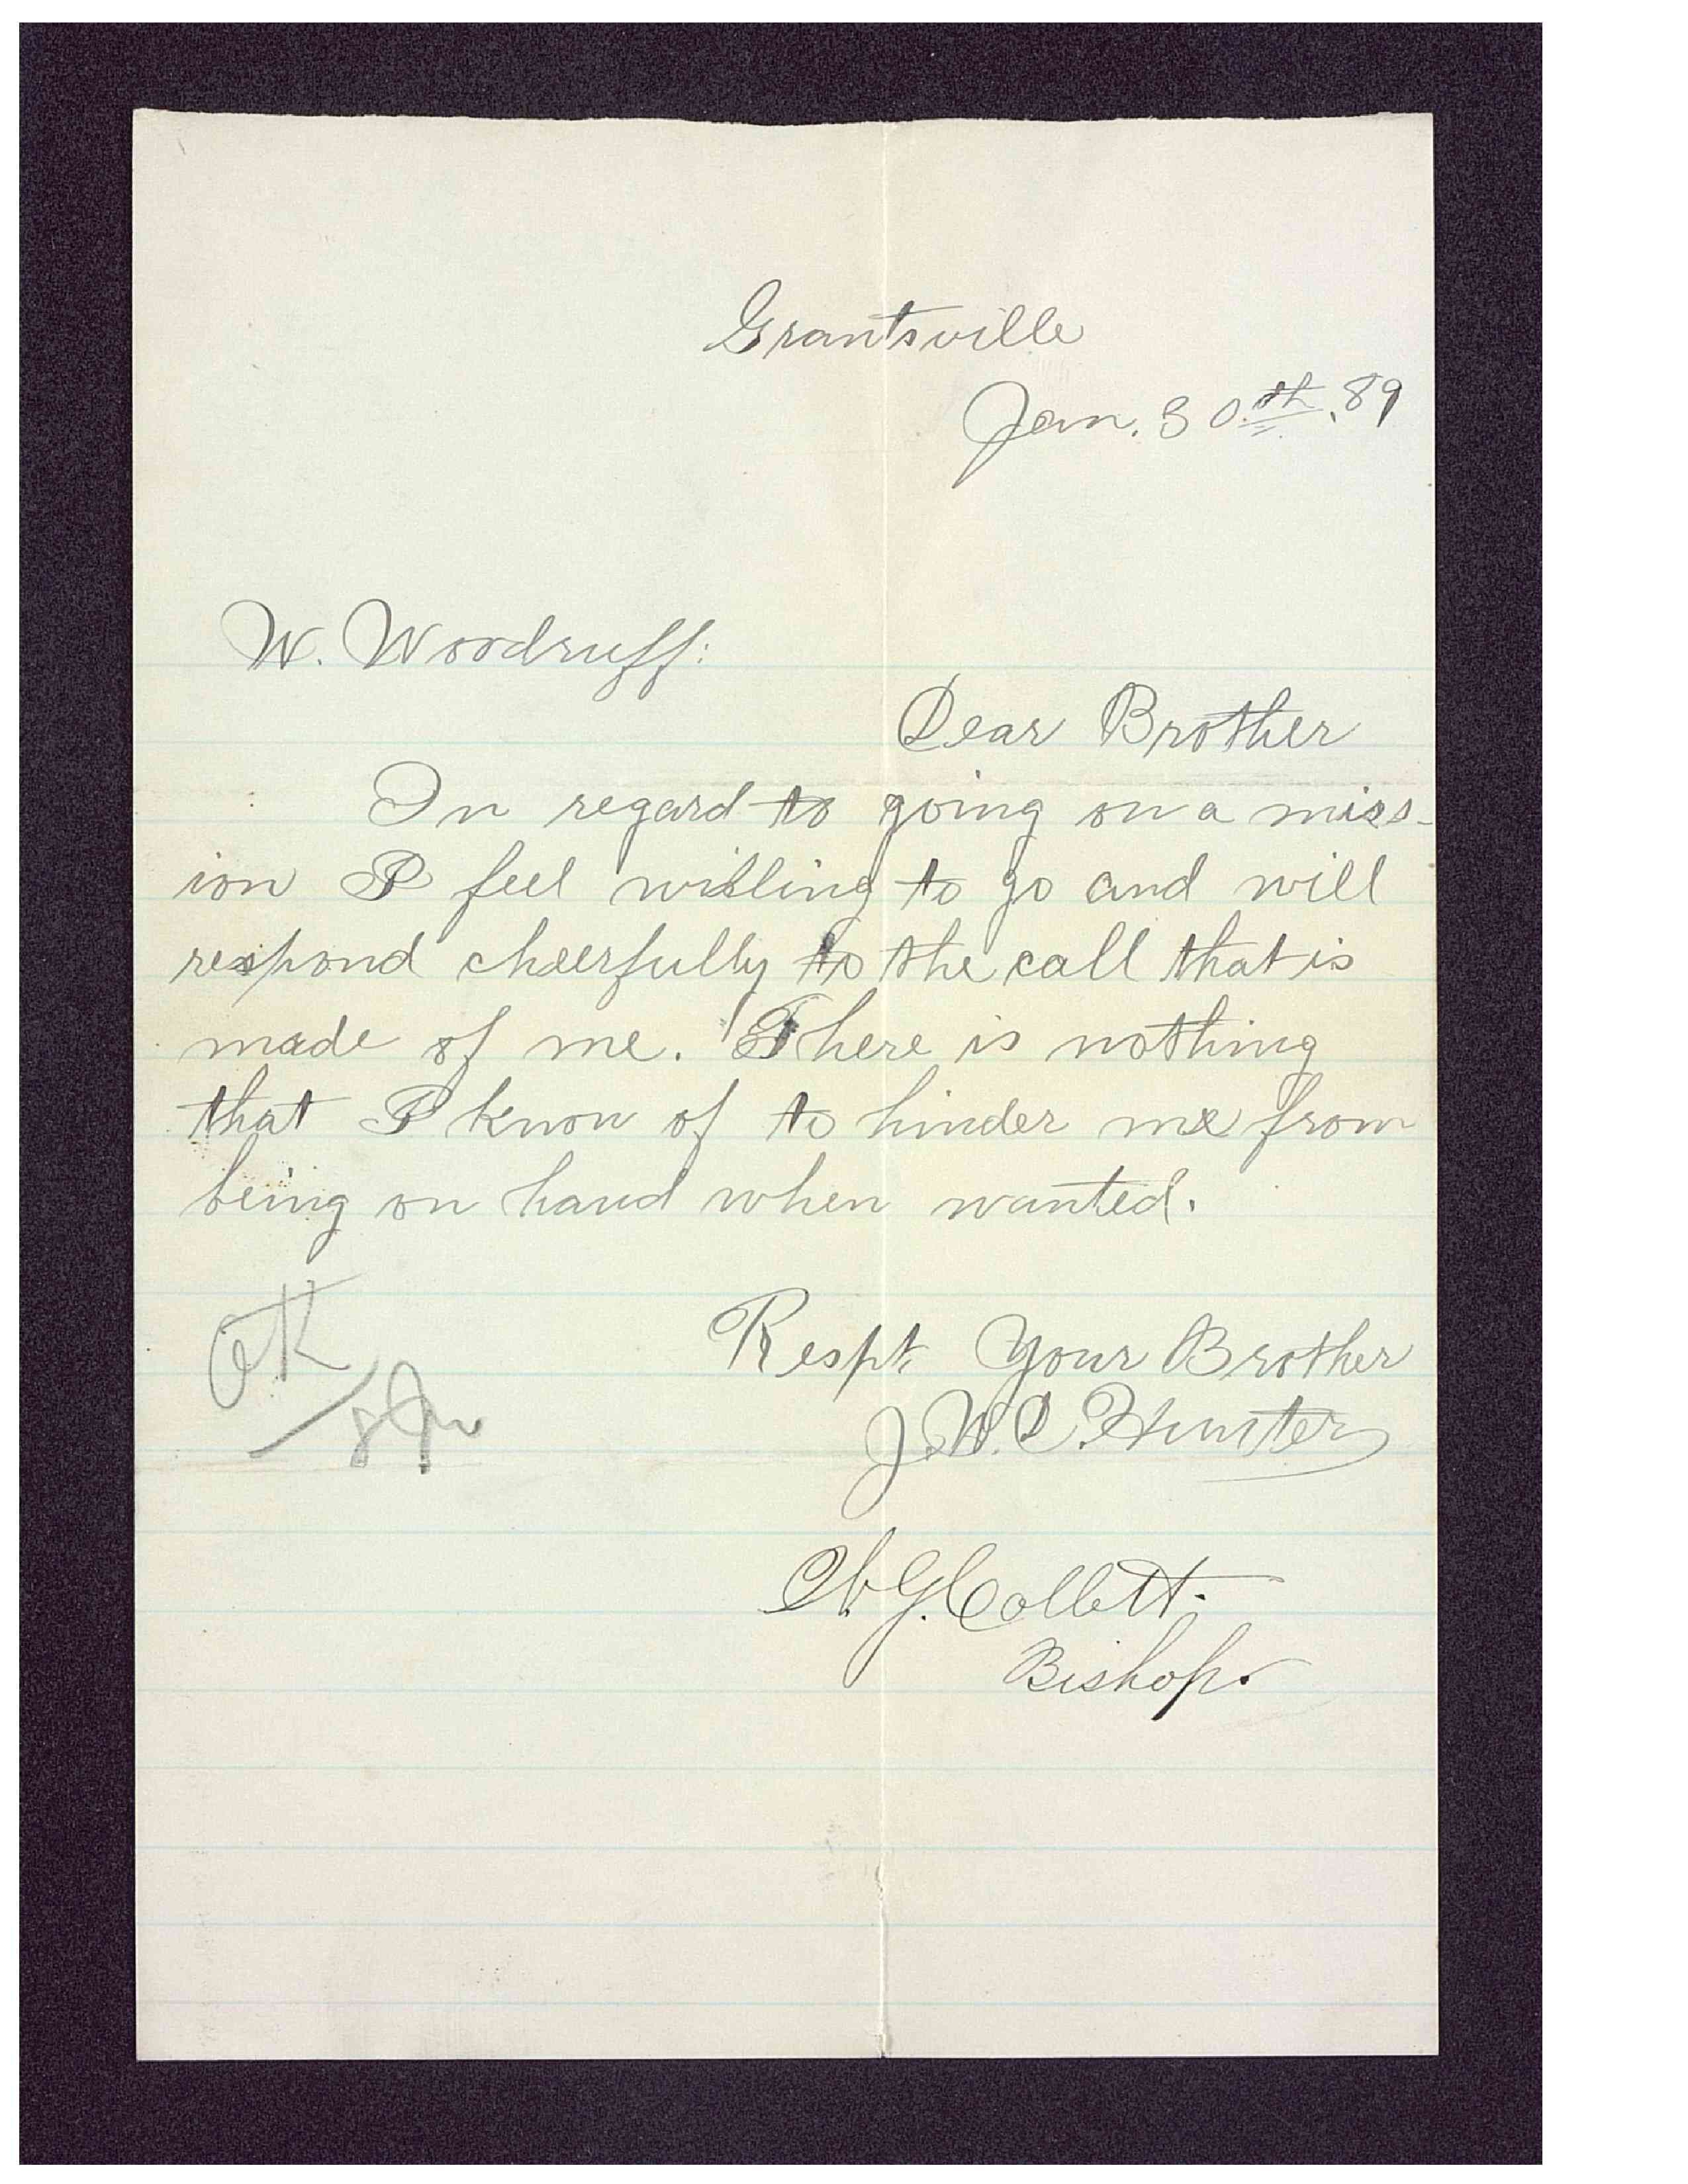 Grantsville
Jan. 30th. 89
W. Woodruff:
Dear Brother
In regard to going on a miss-
ion I feel willing to go and will
respond cheerfully to the call that is
made of me. There is nothing
that I know of to hinder me from
being on hand when wanted.
Respt. Your Brother
J. W. C. Hunter
OK
C. G. Collett.
Bishop.